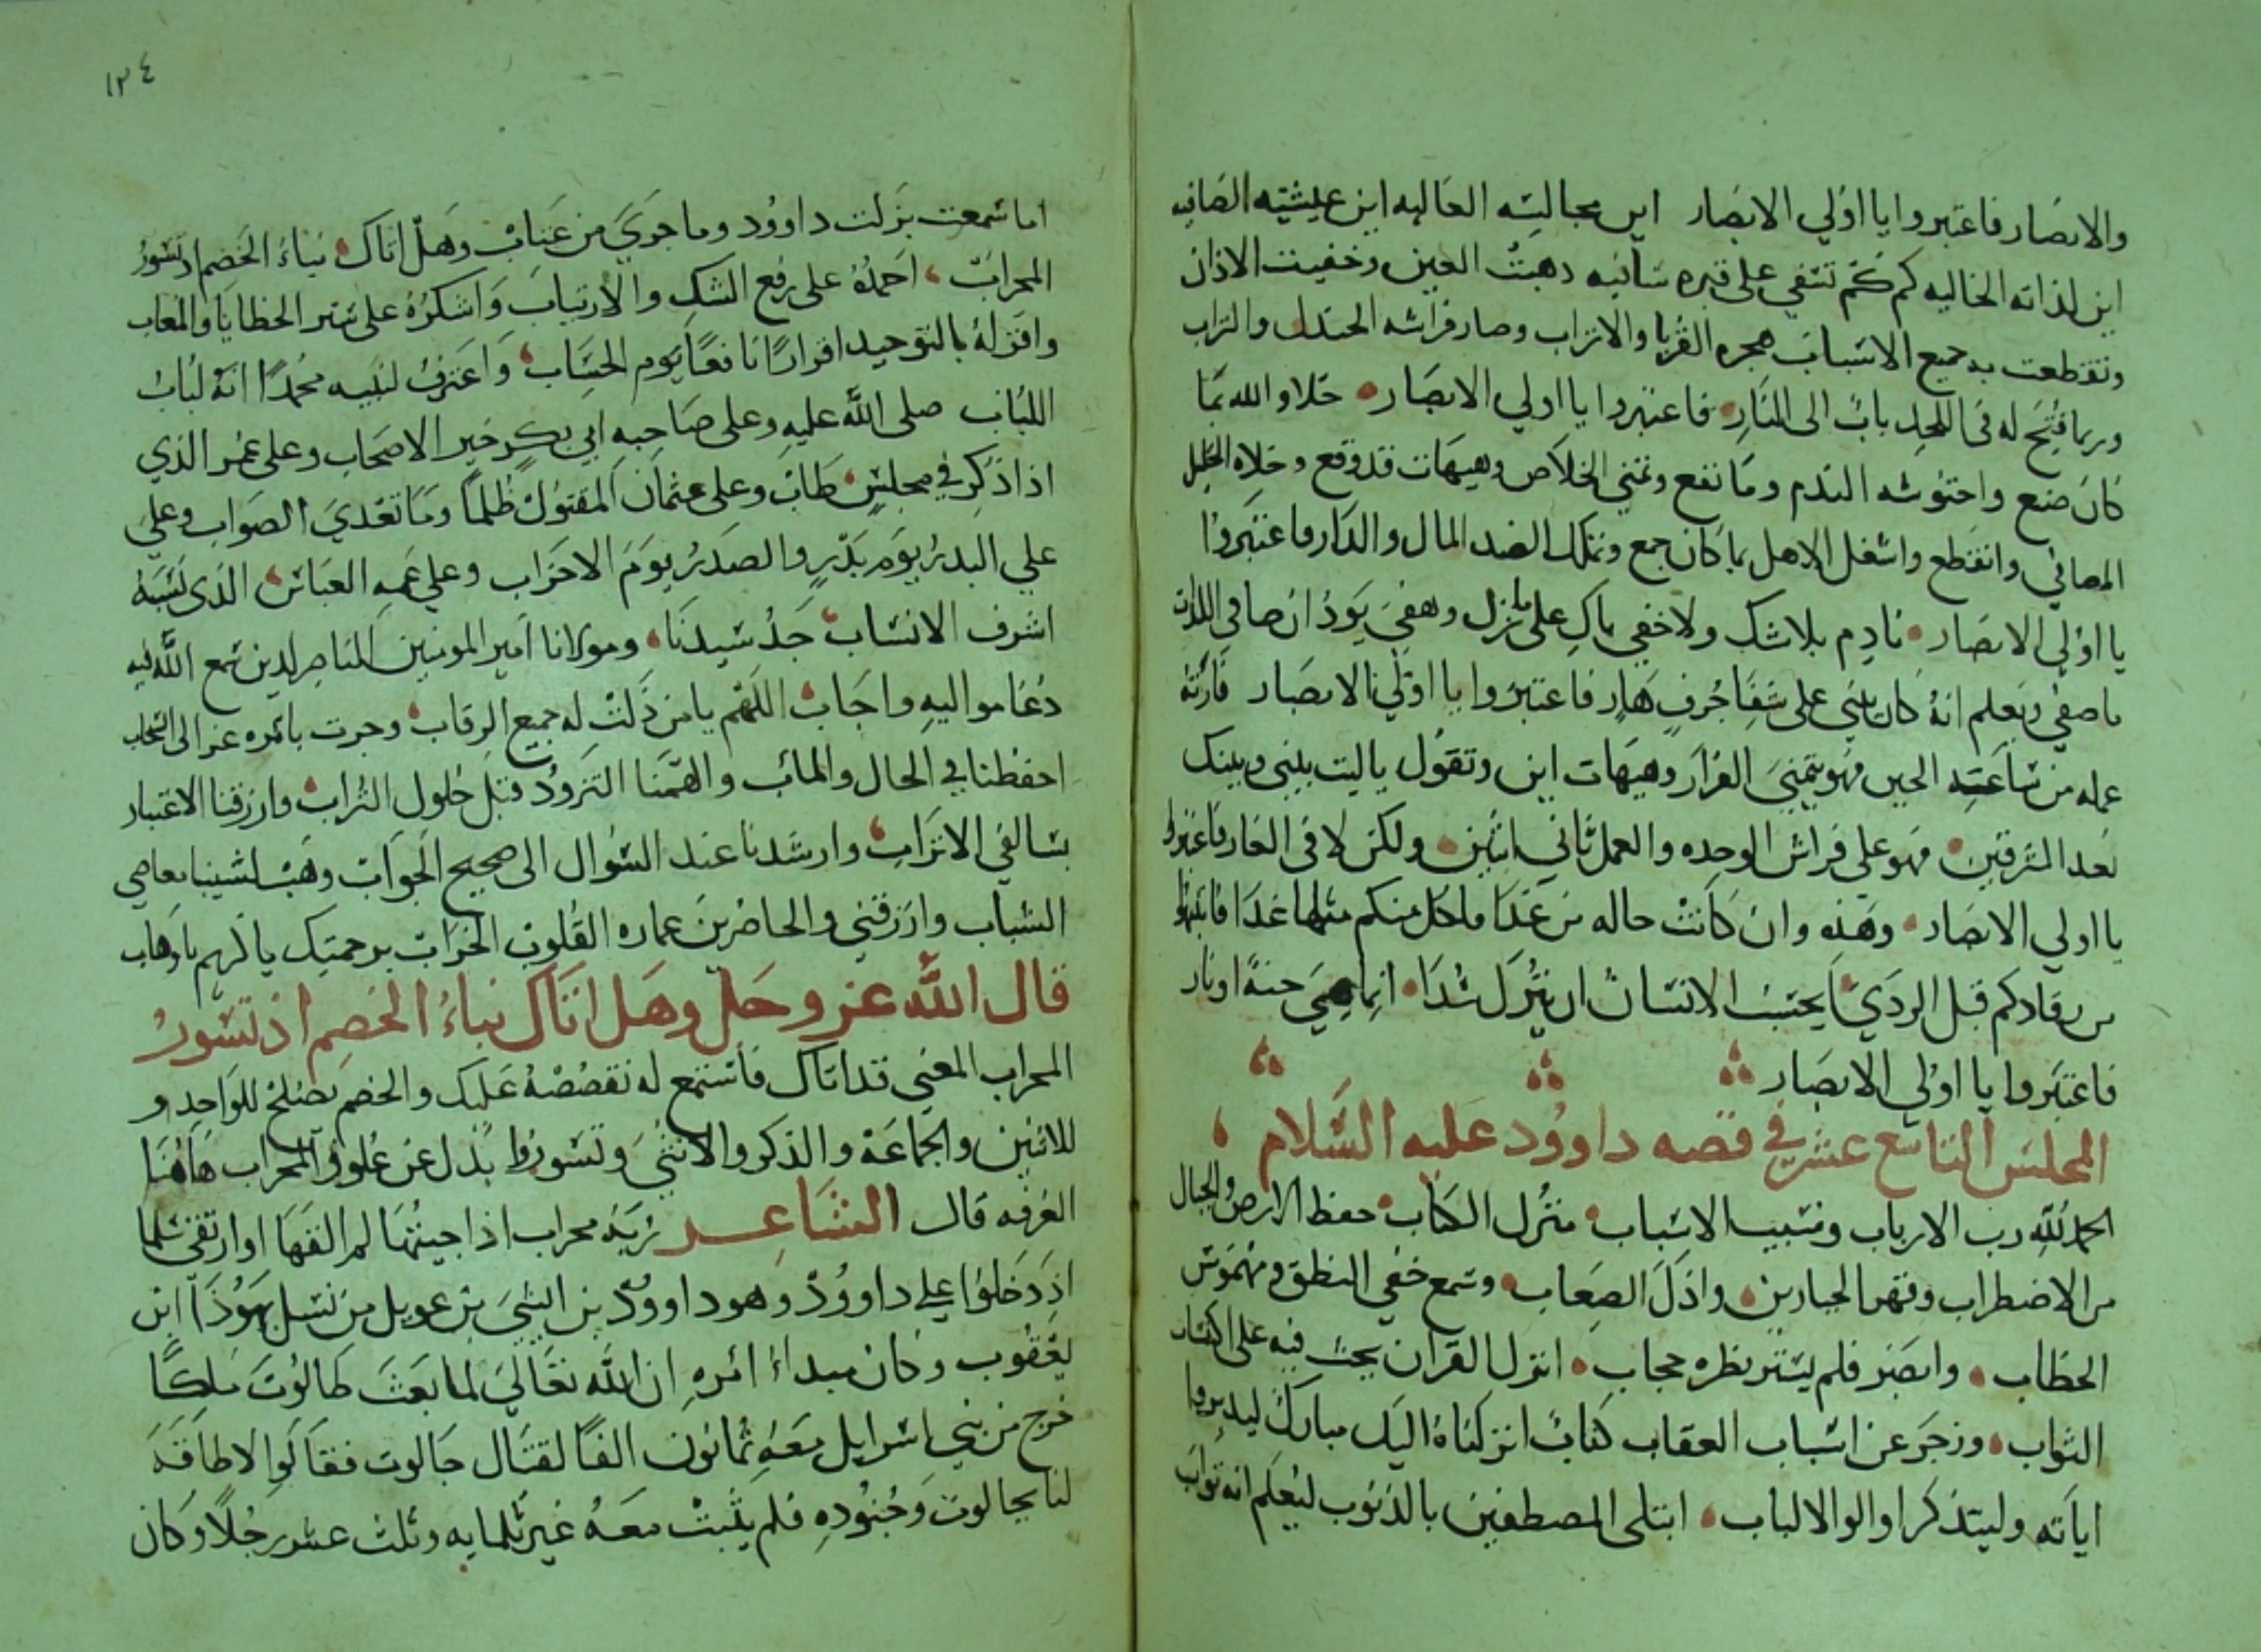 والابصار فاعتبروا يا اولي الابصار اين مجالسه العاليه اين عيشته الصافيه
اين لذاته الخاليه كم كم تسفي على قبره سافيه ذهبت العين وخفيت الاذان
وتقطعت به جميع الاسباب هجره القربا والاتراب وصار فراشه الجندل والتراب
وربما فتح له في اللحد باب الى النار فاعتبروا يا اولي الابصار خلا والله بما
كان صنع واحتوشه الندم وما نفع وتمني الخلاص وهيهات قد وقع وخلاه الخليل
المصافي وانقطع واشتغل الاهل بما كان جمع وتملك الضد المال والدار فاعتبروا
يا اولي الابصار نادم بلا شك ولا خفي باك على ما زل وهفي يود ان صافي اللذات
ما صفي ويعلم انه كان يبني على شفا جرف هار فاعتبروا يا اولي الابصار قارنه
عمله من ساعته الحين فهو يتمني الفرار وهيهات اين وتقول يا ليت بيني وبينك
بعد المشرقين فهو على فراش الوحده والعمل ثاني اثنين ولكن لا في الغار فاعتبروا
يا اولي الابصار وهذه وان كانت حاله من غدا فلكل منكم مثلها غدا فانتبهوا
من رقادكم قبل الردي ايحسب الانسان ان يترك سدا انما هي جنة او نار
فاعتبروا يا اولي الابصار
المجلس التاسع عشر في قصه داوود عليه السلام
الحمد لله رب الارباب ومسبب الاسباب منزل الكتاب حفظ الارض والجبال
من الاضطراب وقهر الجبارين واذل الصعاب وسمع خفي النطق ومهموس
الخطاب وابصر فلم يستر نظره حجاب انزل القران يحث فيه على اكتساب
الثواب وزجر عن اسباب العقاب كتاب انزلناه اليك مبارك ليدبروا
اياته وليتذكر اولوا الالباب ابتلى المصطفين بالذنوب ليعلم انه تواب
١٣٤
اما سمعت بزلت داوود وما جري من عتاب وهل اتاك نباء الخصم اذ تسوروا
المحراب احمده على رفع الشك والارتياب واشكره على ستر الخطايا والمعاب
واقر له بالتوحيد اقرارا نافعا يوم الحساب واعترف لنبيه محمدا انه لباب
اللباب صلى الله عليه وعلى صاحبه ابي بكر خير الاصحاب وعلى عمر الذي
اذا ذكر في مجلس طاب وعلى عثمان المقتول ظلما وما تعدي الصواب وعلي
علي البدر يوم بدر والصدر يوم الاحزاب وعلي عمه العباس الذي نسبه
اشرف الانساب جد سيدنا ومولانا امير المومنين الناصر لدين سمع الله فيه
دعا مواليه واجاب اللهم يا من ذلت له جميع الرقاب وجرت بامره عزالى السحاب
احفظنا في الحال والماب والهمنا التزود قبل حلول التراب وارزقنا الاعتبار
بسالفي الاتراب وارشدنا عند السوال الى صحيح الجواب وهب لشيبنا معاصي
الشباب وارزقني والحاضرين عماره القلوب الخراب برحمتك يا كريم يا وهاب
قال الله عز وجل وهل اتاك نباء الخصم اذ تسوروا
المحراب المعني قد اتاك فاستمع له نقصصه عليك والخصم يصلح للواحد و
للاثنين والجماعة والذكر والانثي وتسوروا يدل عن علو والمحراب هاهنا
الغرفه قال الشاعر ربة محراب اذا جيتها لم القها او ارتقي سلما
اذ دخلوا على داوود وهو داوود بن ايشي بن عويل من نسل يهوذا ابن
يعقوب وكان مبداء امره ان الله تعالي لما بعث طالوت ملكا
خرج من بني اسرايل معه ثمانون الفا لقتال جالوت فقالوا لا طاقة
لنا بجالوت وجنوده فلم يثبت معه غير ثلمايه وثلث عشر رجلا وكان